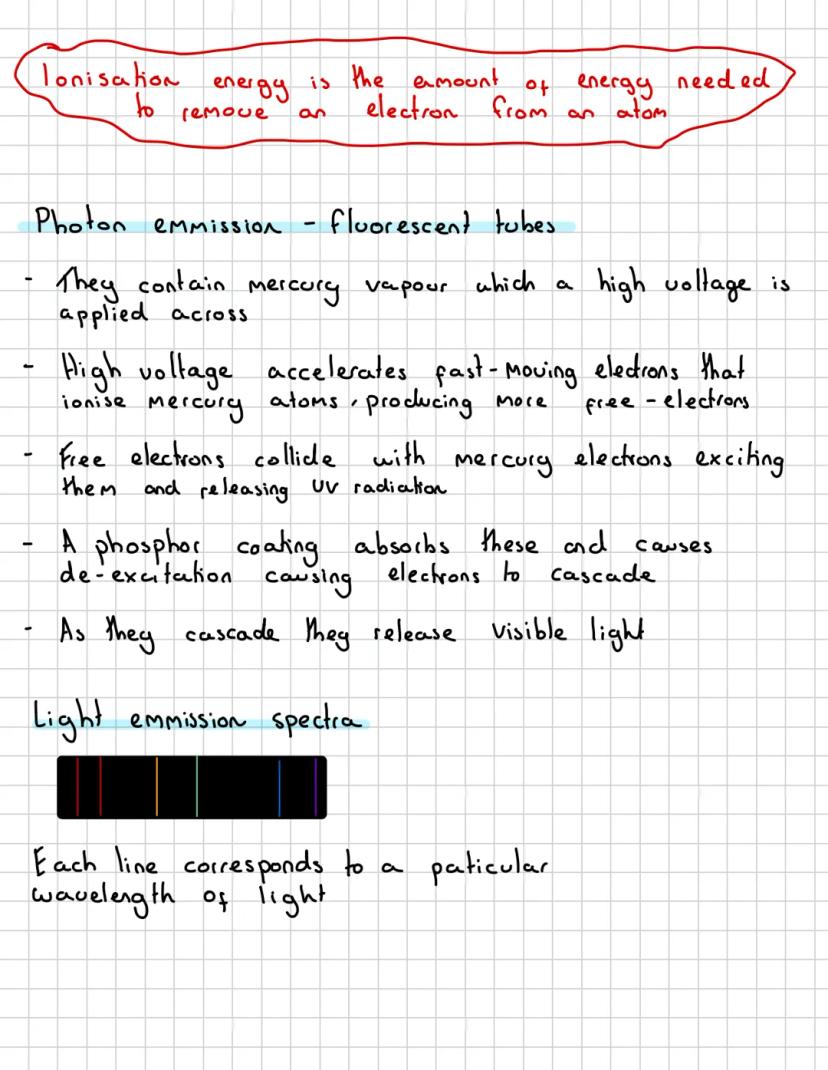 Ionisation energy is the amount of energy needed
to remove an electron from an atom
Photon emmission - fluorescent tubes
- They contain mercury vapour which a high voltage is
applied across
- High voltage accelerates fast-moving electrons that
ionise mercury atoms, producing more free-electrons
- Free electrons collide with mercury electrons exciting
them and releasing UV radiation
- A phosphor coating absorbs these and causes
de-excitation causing electrons to cascade
- As they cascade they release visible light
Light emmission spectra
Each line corresponds to a paticular
wavelength of light